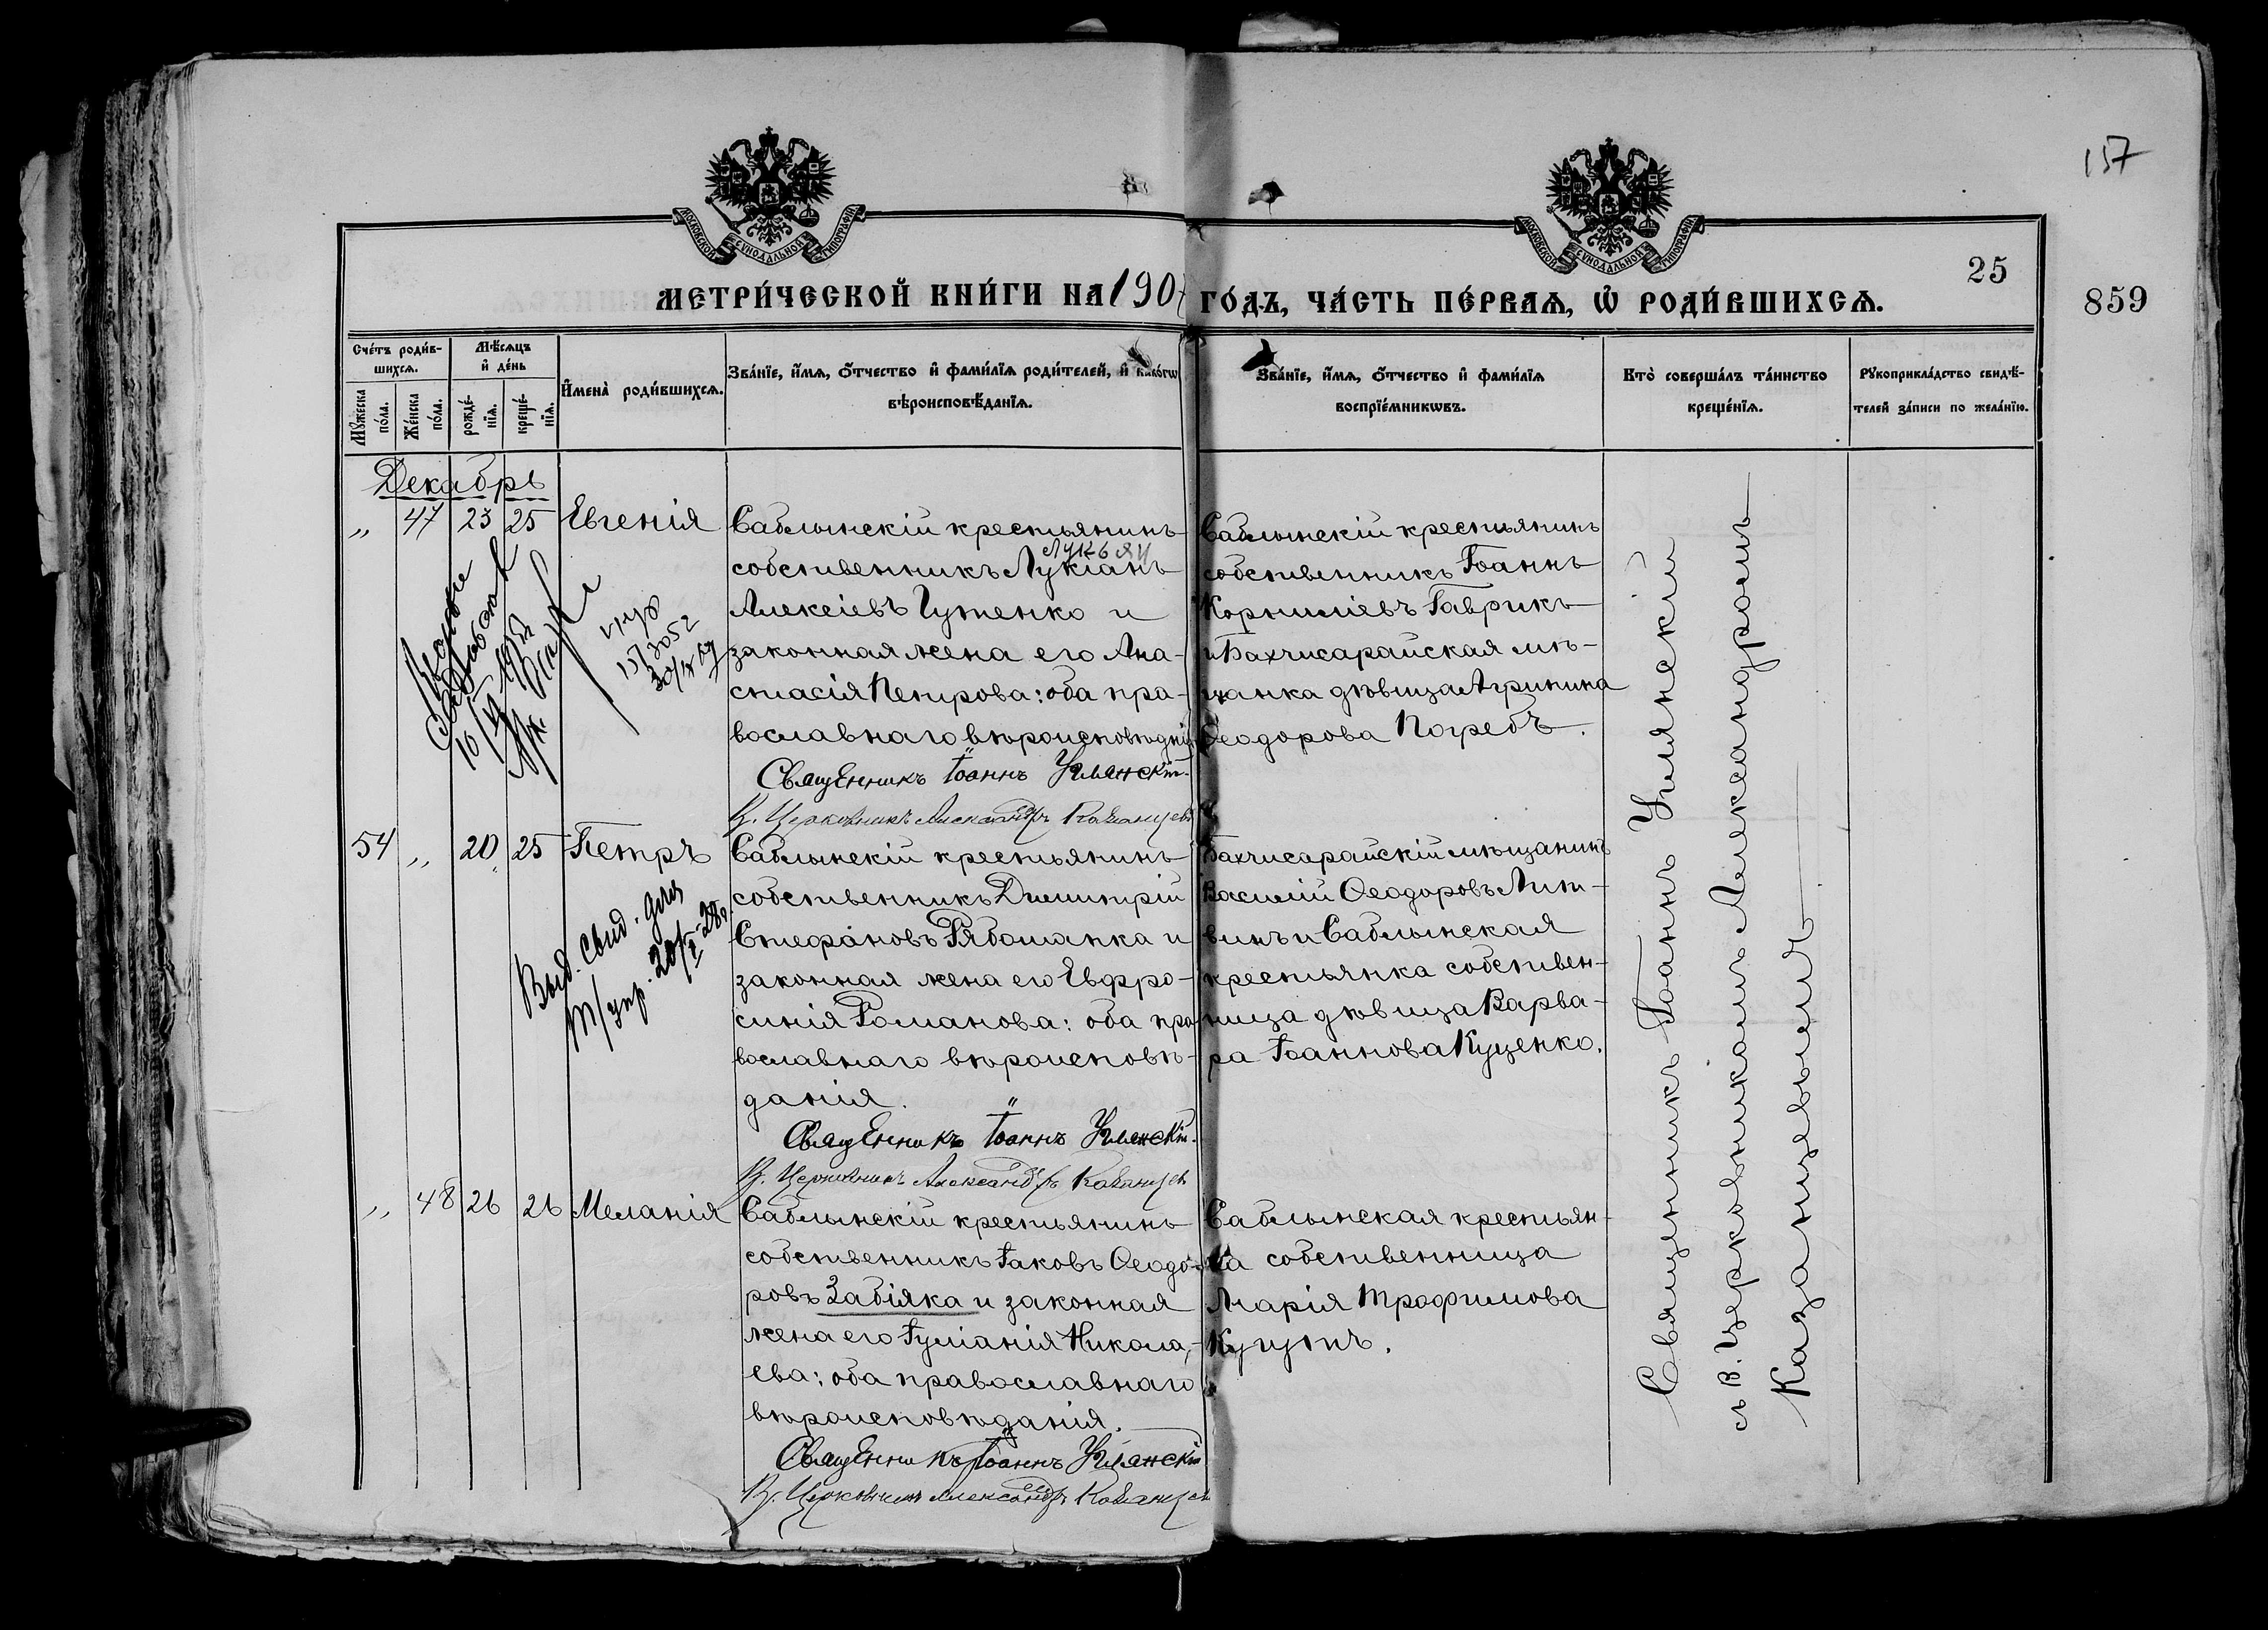 157
МОСКОВСКОЙ СѴНОДАЛЬНОЙ ТИПОГРАФІИ
МОСКОВСКОЙ СѴНОДАЛЬНОЙ ТИПОГРАФІИ
25
МЕТРИ́ЧЕСКОЙ КНИ́ГИ НА 190
ГО́ДЪ, ЧА́СТЬ ПЕ́РВАѦ, Ѡ҆ РОДИ́ВШИХСѦ.
859
Сче́тъ роди́в-
шихсѧ.
Мꙋ́жеска по́ла.
Же́нска по́ла.
Мѣ́сѧцъ
и҆ де́нь
рожде́-
нїѧ.
креще́-
нїѧ.
И҆мена̀ роди́вшихсѧ.
Зва́нїе, и҆́мѧ, ѻ҆́тчество и҆ фами́лїѧ роди́телей, и҆ како́гѡ
вѣроисповѣ́данїѧ.
Зва́нїе, и҆́мѧ, ѻ҆́тчество и҆ фами́лїѧ
воспрїе́мникѡвъ.
Кто̀ соверша́лъ та́инство
креще́нїѧ.
Рꙋкоприкла́дство свидѣ́-
телей за́писи по жела́нїю.
Декабрь
" 47 23 25 Евгенія
Саблынскій крестьянинъ
Лукьян
собственникъ Лукіанъ
Алексіевъ Гутенко и
законная жена его Ана-
стасія Петрова: оба пра-
вославнаго вѣроисповѣдні
Священникъ Іоаннъ Углянскій
В. Церковника Александръ Казанцевъ
Саблынскій крестьянинъ
собственникъ Іоаннъ
Корниліевъ Гаврикъ
и Бахчисарайская мѣ-
щанка дѣвица Агрипина
Ѳеодорова Погребъ.
54 " 20 25 Петръ
Выд. свид. для
20/I-28г.
Саблынскій крестьянинъ
собственникъ Димитрій
Стефановъ Рябошапка и
законная жена его Евфро-
синія Романова: оба пра
вославнаго вѣроисповѣ-
данія.
Священникъ Іоаннъ Углянскій
В. Церковникъ Александръ Казанцевъ
Бахчисарайскій мѣщанинъ
Василій Ѳеодоровъ Лит-
винъ и Саблынская
крестьянка собствен-
ница дѣвица Варва-
ра Іоаннова Куценко.
" 48 26 26 Меланія
Саблынскій крестьянинъ
собственникъ Іаковъ Ѳеодо-
ровъ Забіяка и законная
жена его Іуліанія Никола-
ева: оба православнаго
вѣроисповѣданія.
Священникъ Іоаннъ Углянскій
В. Церковникъ Александръ Казанцев
Саблынская крестьян-
ка собственница
Марія Трофимова
Священникъ Іоаннъ Углянскій
съ В. Церковникомъ Александромъ
Казанцевымъ